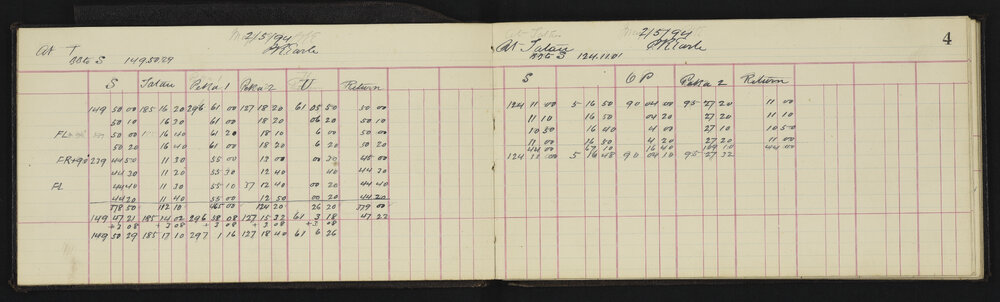 2/5/94
At T
BBto S 149.50.29
S Tatau Peka 1 Peka 2 U Return
149 50 00 185 16 20 296 61 00 127 18 20 61 05 50 50 00
50 10 16 30 61 00 18 20 06 20 50 10
FL 50 00 16 40 61 20 18 10 6 00 50 00
50 20 16 40 61 00 18 20 6 20 50 20
FR+90 239 44 50 11 30 55 00 12 00 00 30 45 00
44 30 11 20 55 30 12 40 40 44 30
FL 44 40 11 30 55 10 37 12 40 00 20 44 40
44 20 11 40 55 00 12 50 00 20 44 20
378 50 112 10 465 00 124 20 26 20 379 00
149 47 21 185 14 02 296 58 08 127 15 32 61 3 18 47 22
+3 08 +3 08 +3 08 +3 08 +3 08
149 50 29 185 17 10 297 1 16 127 18 40 61 6 26
2/5/94
4
At Tatau
BBto S 124.11.01
S O P Peka 2 Return
124 11 00 5 16 50 90 04 00 95 27 20 11 00
11 10 16 50 04 20 27 20 11 10
10 50 16 40 4 00 27 10 10 50
11 00 16 50 4 20 27 20 11 00
44 00 67 10 16 40 109 10 44 00
124 11 00 5 16 48 90 04 10 95 27 32